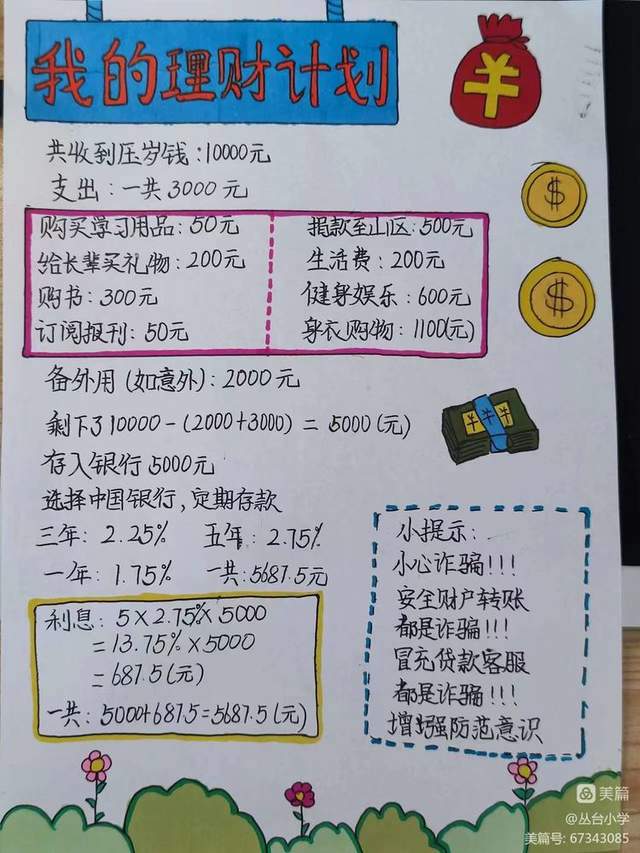 我的理财计划
¥
共收到压岁钱:10000元
支出:一共3000元
$
购买学习用品:50元 捐款至山区:500元
给长辈买礼物:200元 生活费:200元
购书:300元 健身娱乐:600元
订阅报刊:50元 身衣购物:1100(元)
$
备外用(如意外):2000元
剩下了10000-(2000+3000)=5000(元)
存入银行5000元
选择中国银行,定期存款
三年:2.25% 五年:2.75%
一年:1.75% 一共:5687.5元
利息:5×2.75%×5000
=13.75%×5000
=687.5(元)
一共:5000+687.5=5687.5(元)
小提示:
小心诈骗!!!
安全财户转账
都是诈骗!!!
冒充贷款客服
都是诈骗!!!
增强防范意识
美篇
@丛台小学
美篇号:67343085